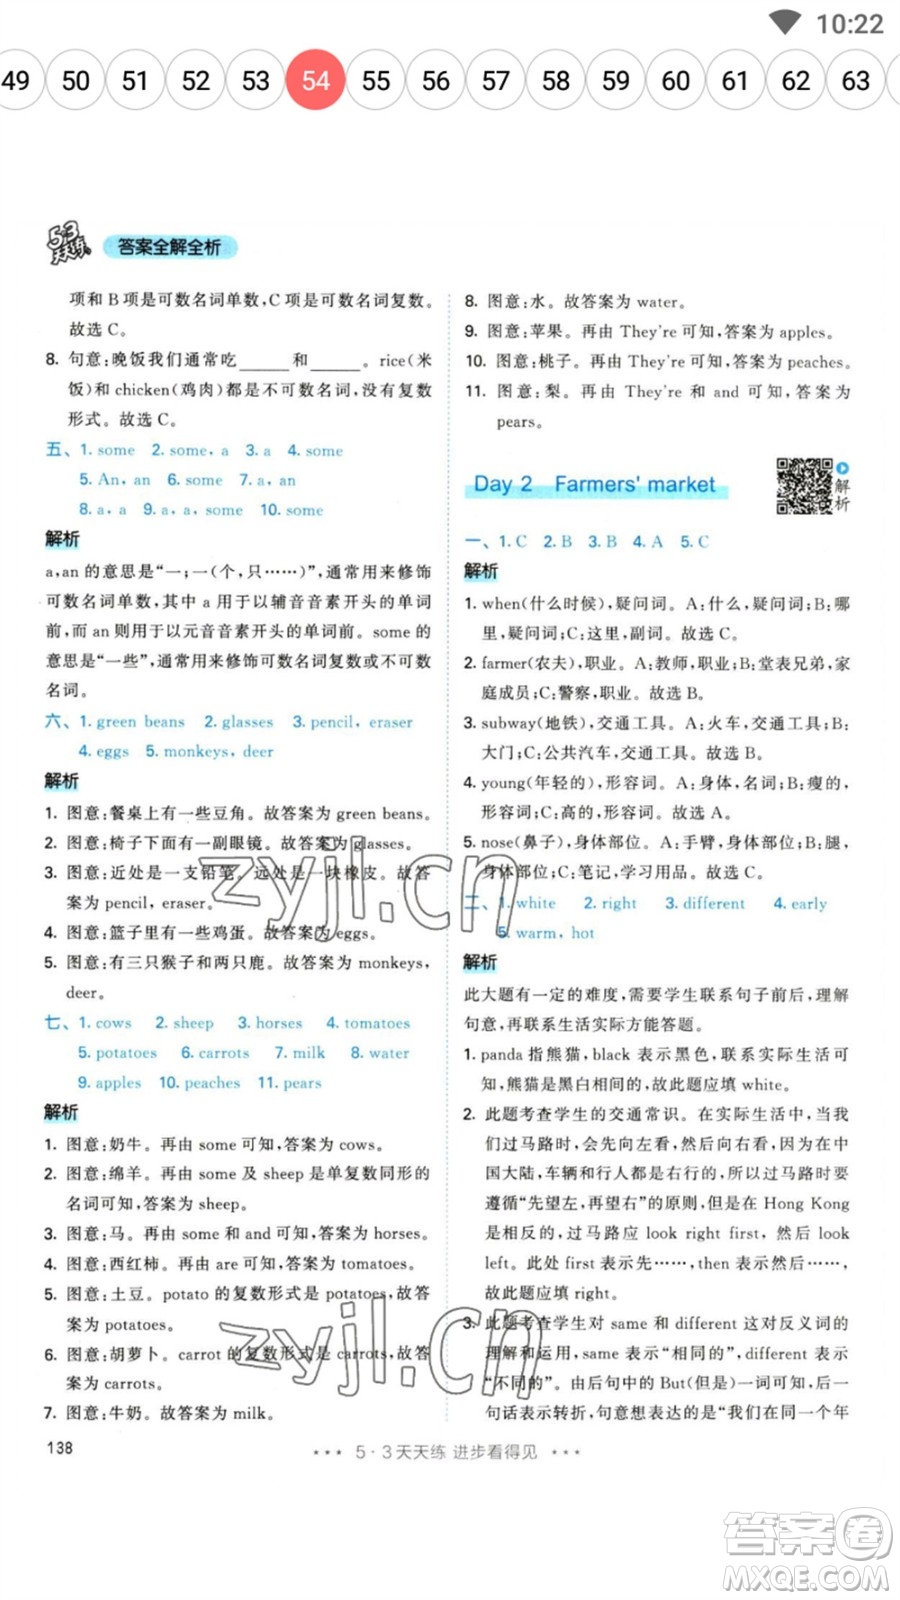 10:22
49 50 51 52 53 54 55 56 57 58 59 60 61 62 63
5·3
天天练
答案全解全析
项和 B 项是可数名词单数,C 项是可数名词复数。
故选 C。
8. 句意:晚饭我们通常吃______和______。rice(米
饭)和 chicken(鸡肉)都是不可数名词,没有复数
形式。故选 C。
五、1. some 2. some, a 3. a 4. some
5. An, an 6. some 7. a, an
8. a, a 9. a, some 10. some
解析
a,an 的意思是“一;一(个,只……)”,通常用来修饰
可数名词单数,其中 a 用于以辅音音素开头的单词
前,而 an 则用于以元音音素开头的单词前。some 的
意思是“一些”,通常用来修饰可数名词复数或不可数
名词。
六、1. green beans 2. glasses 3. pencil, eraser
4. eggs 5. monkeys, deer
解析
1. 图意:餐桌上有一些豆角。故答案为 green beans.
2. 图意:椅子下面有一副眼镜。故答案为 glasses.
3. 图意:近处是一支铅笔。远处是一块橡皮。故答
案为 pencil, eraser.
4. 图意:篮子里有一些鸡蛋。故答案为 eggs.
5. 图意:有三只猴子和两只鹿。故答案为 monkeys,
deer.
七、1. cows 2. sheep 3. horses 4. tomatoes
5. potatoes 6. carrots 7. milk 8. water
9. apples 10. peaches 11. pears
解析
1. 图意:奶牛。再由 some 可知,答案为 cows.
2. 图意:绵羊。再由 some 及 sheep 是单复数同形的
名词可知,答案为 sheep.
3. 图意:马。再由 some 和 and 可知,答案为 horses.
4. 图意:西红柿。再由 are 可知,答案为 tomatoes.
5. 图意:土豆。potato 的复数形式是 potatoes,故答
案为 potatoes.
6. 图意:胡萝卜。carrot 的复数形式是 carrots,故答
案为 carrots.
7. 图意:牛奶。故答案为 milk.
138
8. 图意:水。故答案为 water.
9. 图意:苹果。再由 They're 可知,答案为 apples.
10. 图意:桃子。再由 They're 可知,答案为 peaches.
11. 图意:梨。再由 They're 和 and 可知,答案为
pears.
Day 2 Farmers' market
解析
一、1. C 2. B 3. B 4. A 5. C
解析
1. when(什么时候),疑问词。A:什么,疑问词;B:哪
里,疑问词;C:这里,副词。故选 C。
2. farmer(农夫),职业。A:教师,职业;B:堂表兄弟,家
庭成员;C:警察,职业。故选 B。
3. subway(地铁),交通工具。A:火车,交通工具;B:
大门;C:公共汽车,交通工具。故选 B。
4. young(年轻的),形容词。A:身体,名词;B:瘦的,
形容词;C:高的,形容词。故选 A。
5. nose(鼻子),身体部位。A:手臂,身体部位;B:腿,
身体部位;C:笔记,学习用品。故选 C。
二、1. white 2. right 3. different 4. early
5. warm, hot
解析
此大题有一定的难度,需要学生联系句子前后,理解
句意,再联系生活实际方能答题。
1. panda 指熊猫,black 表示黑色,联系实际生活可
知,熊猫是黑白相间的。故此题应填 white.
2. 此题考查学生的交通常识。在实际生活中,我
们过马路时,会先向左看,然后向右看,因为在中
国大陆,车辆和行人都是右行的,所以过马路时
遵循“先望左,再望右”的原则,但是在 Hong Kong
是相反的,过马路应 look right first, 然后 look
left。此处 first 表示先……,then 表示然后……,
故此题应填 right.
3. 此题考查学生对 same 和 different 这对反义词的
理解和运用,same 表示“相同的”,different 表示
“不同的”。由后句中的 But(但是)一词可知,前后
句话表示转折,句意想表示“我们虽然在同一年
*** 5·3天天练 进步看得见 ***
zyjl.cn
zyjl.cn
答案圈
MXQE.COM